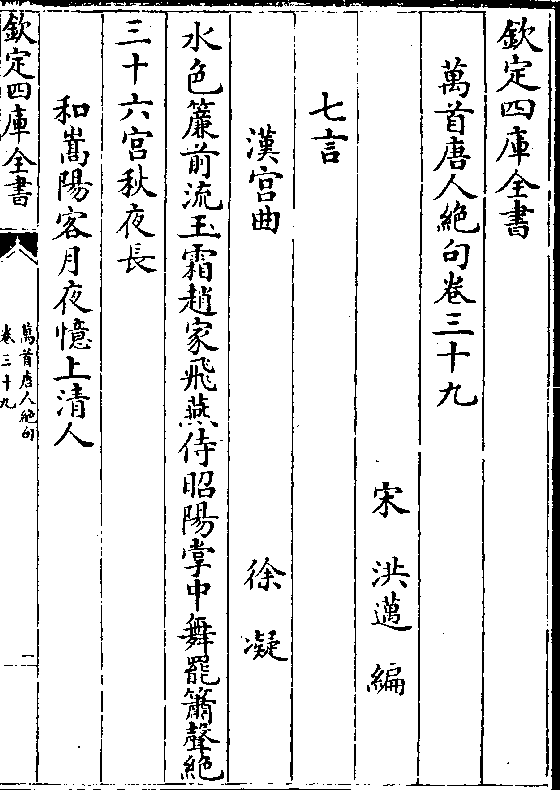 欽定四庫全書
萬首唐人絕句卷三十九
宋 洪邁 編
七言
漢宮曲 徐凝
水色簾前流玉霜趙家飛燕侍昭陽掌中舞罷簫聲絕
三十六宮秋夜長
和嵩陽客月夜憶上清人
欽定四庫全書
萬首唐人絕句
卷三十九
一